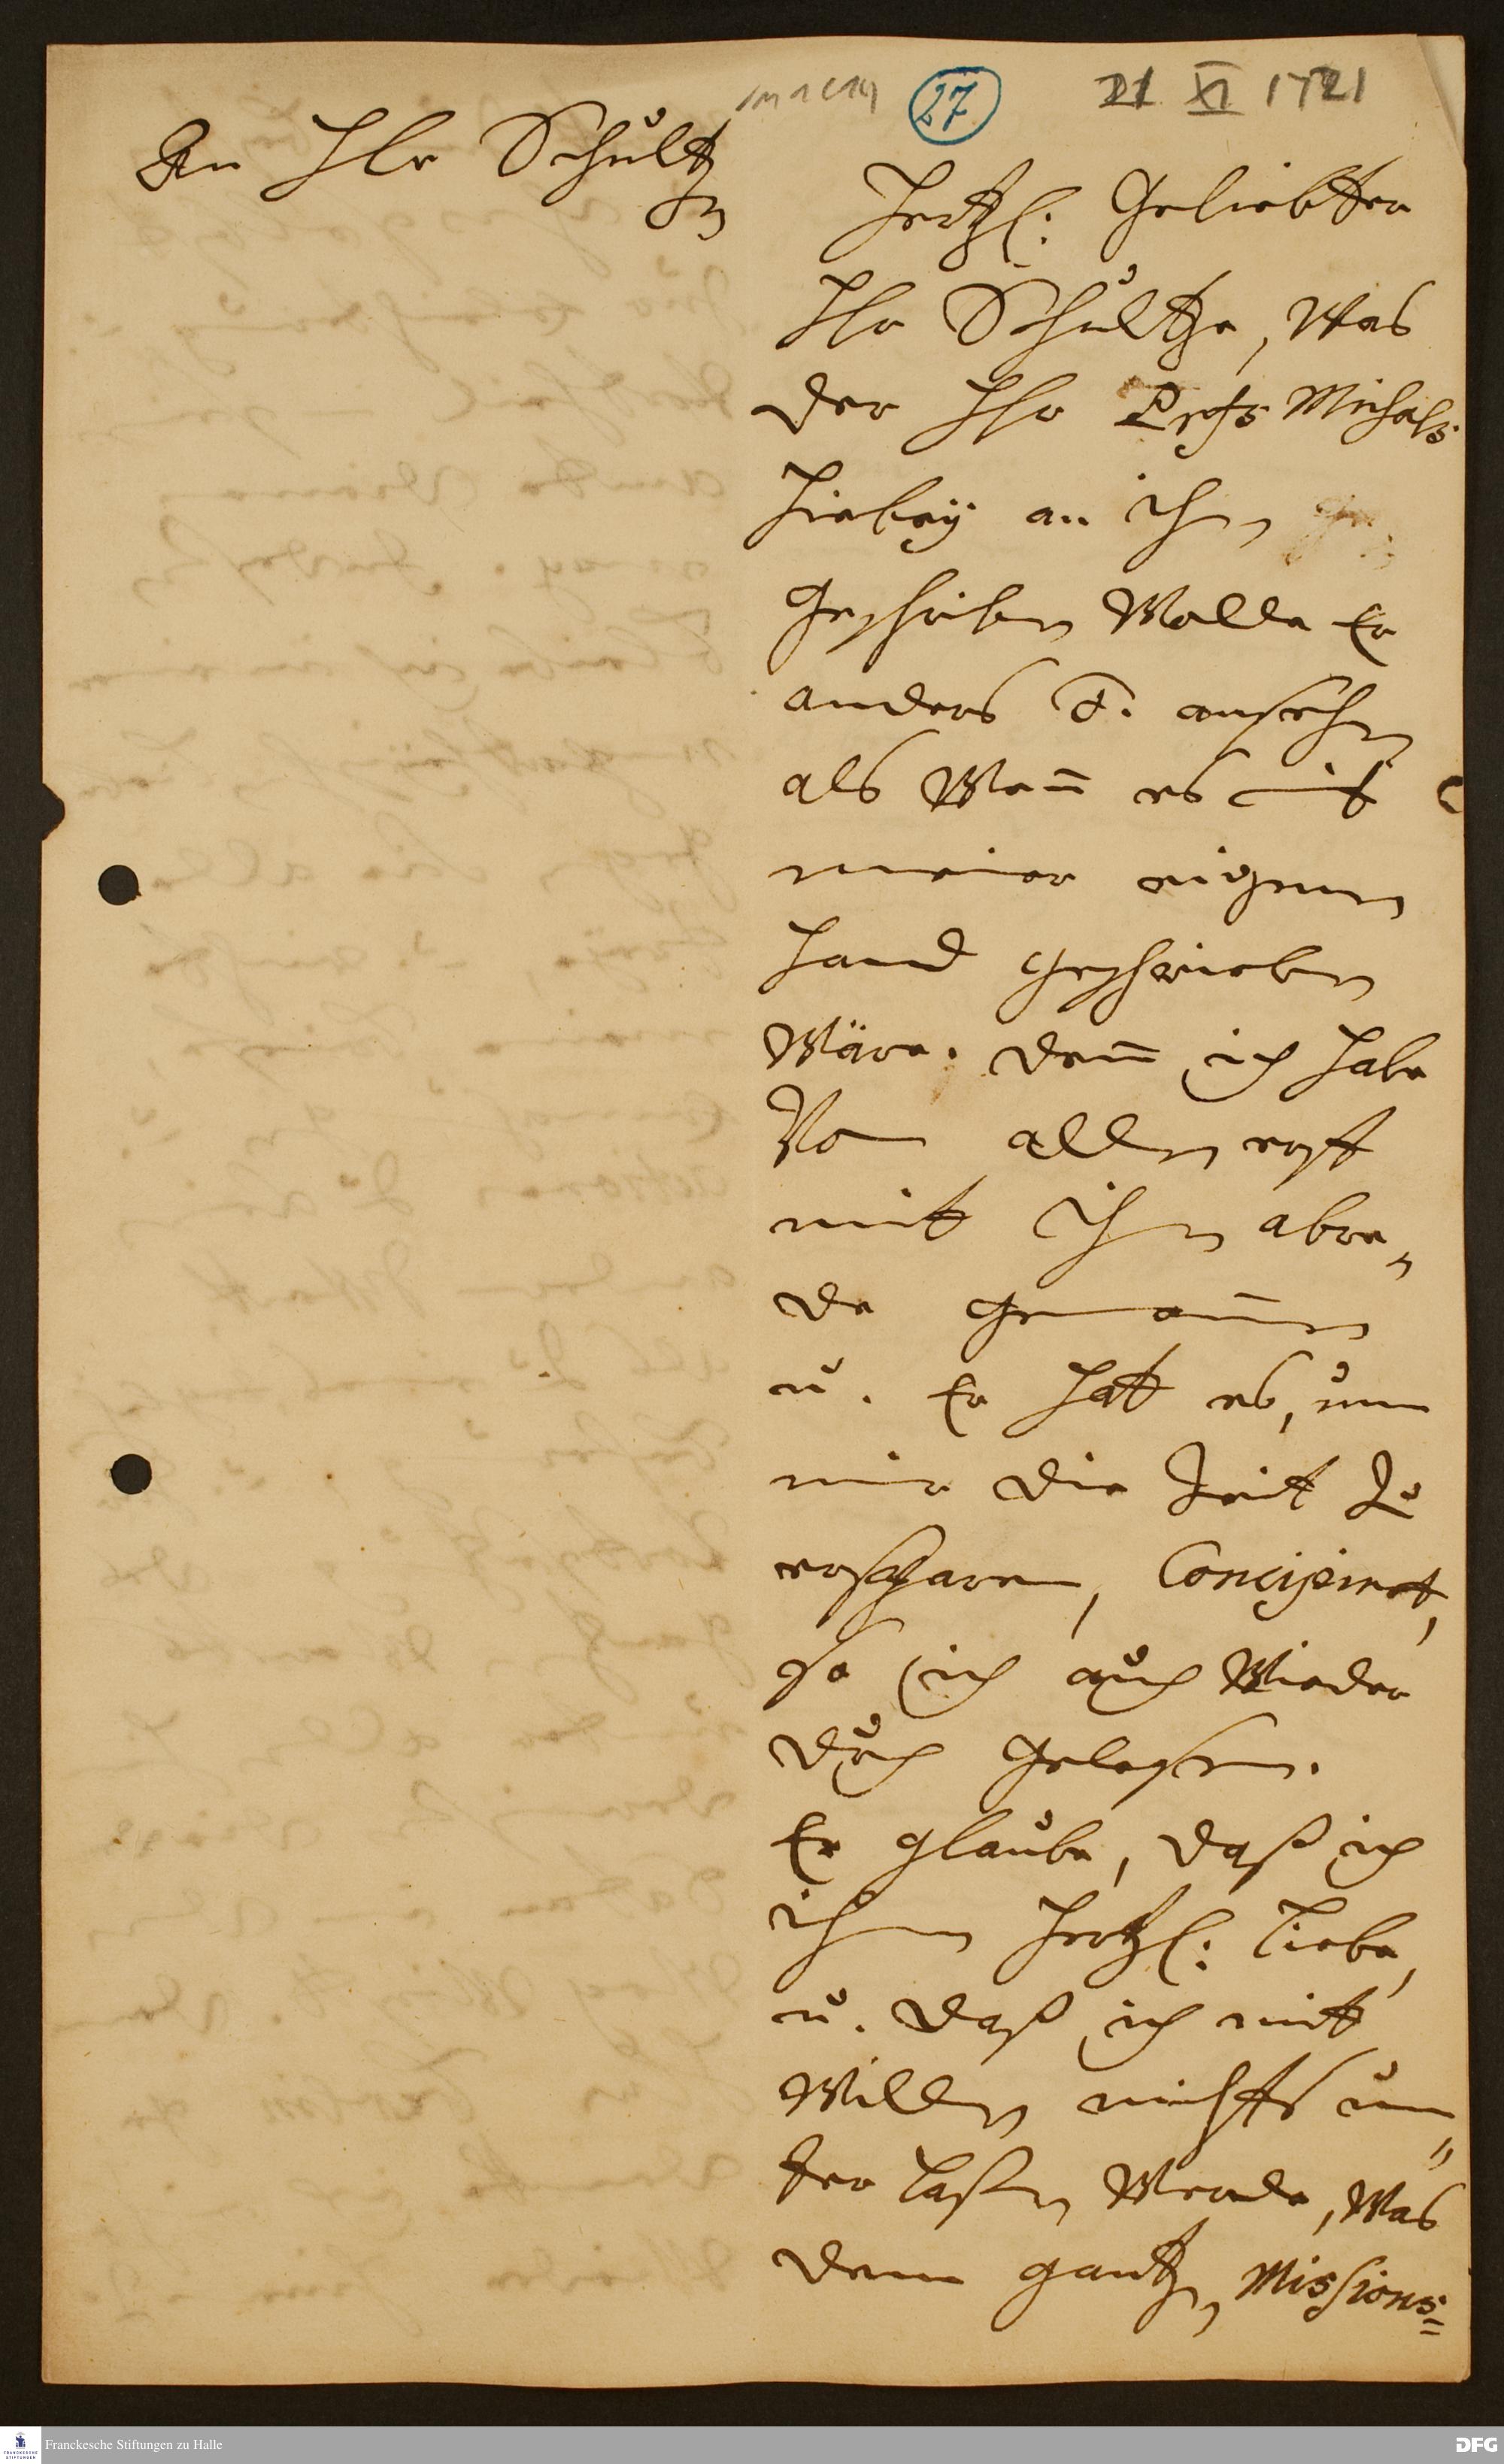 27
21 XI 1721
An Hr Schultz
en
Hertzl. Geliebter
Hr Schultze, Was
der Hr Profs Michaels
hiebey an ihn
geschrieben Wolle Er
anders d. ansehn
als Wenn̄ es mit
meiner eigenen
Hand geschrieben
Wäre. denn̄ ich habe
Von allen erst
mit ihm abre„
de genom̄en
u. Er hat es, um
mir die Zeit Zu
ersparen, Concipiret,
so ich auch Wieder
durch gelesen.
Er glaube, daß ich
ihn hertzl. liebe,
u. daß ich mit
Willen nichts un„
ter laßen Werde, Was
dem gantzen Missions=
Franckesche Stiftungen zu Halle
DFG